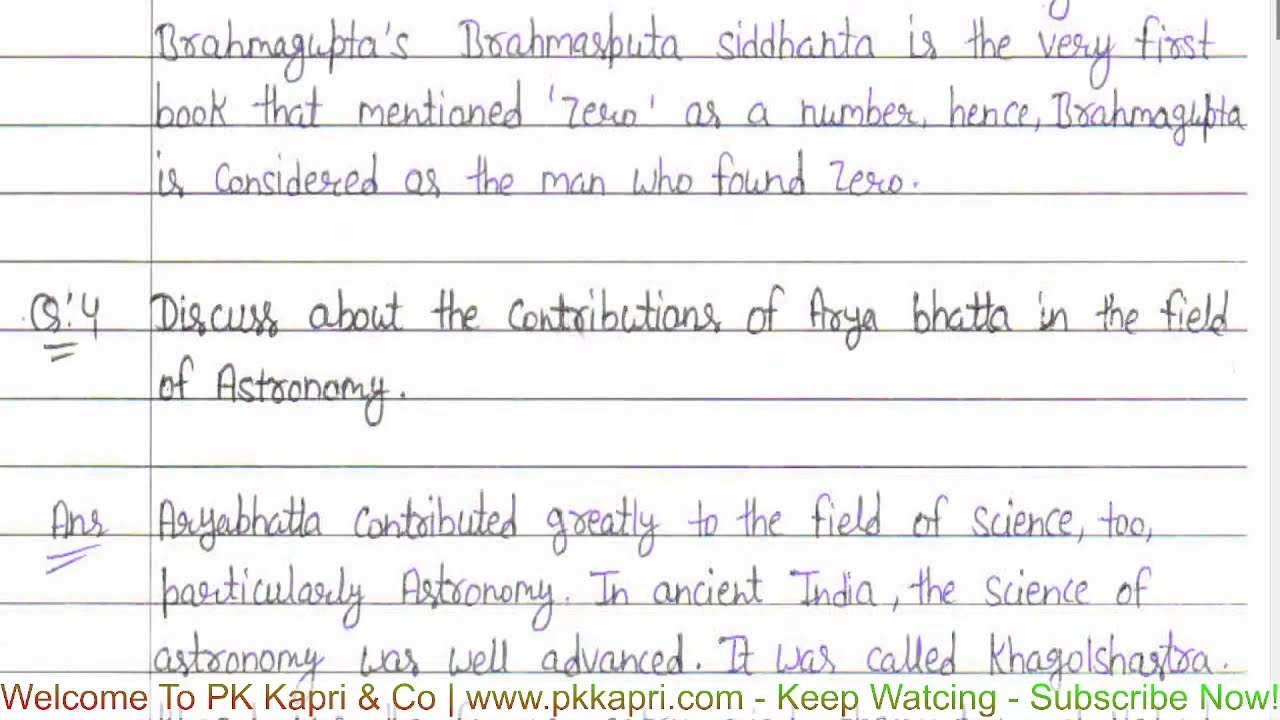 Brahmagupta's Brahmasputa siddhanta is the very first
book that mentioned 'Zero' as a number, hence, Brahmagupta
is considered as the man who found Zero.
Q:4 Discuss about the contributions of Arya bhatta in the field
of Astronomy.
Ans Aryabhatta contributed greatly to the field of science, too,
particularly Astronomy. In ancient India, the science of
astronomy was well advanced. It was called Khagolshastra.
Welcome To PK Kapri & Co | www.pkkapri.com - Keep Watcing - Subscribe Now!